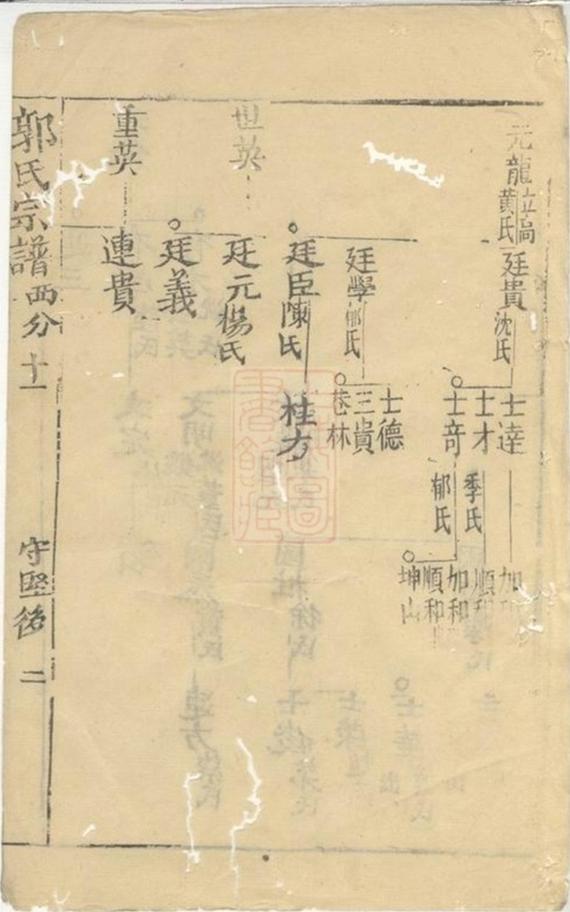 元龍
黄氏
廷貴
沈氏
士達
士才
季氏
士竒
郁氏
加
順和
加和
順和
坤山
廷學
郁氏
士德
三貴
巷林
廷臣
陳氏
桂方
世英
廷元
楊氏
廷義
重英
連貴
郭氏宗譜
西分
十一
守堅後
二